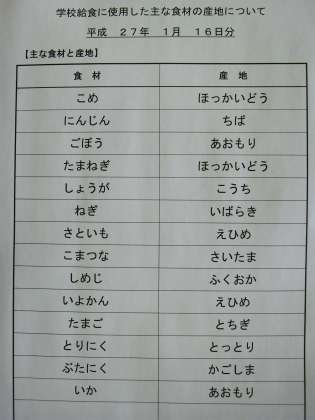 学校給食に使用した主な食材の産地について
平成　２７年　１月　１６日分
【主な食材と産地】
食　材　産　地
こめ　ほっかいどう
にんじん　ちば
ごぼう　あおもり
たまねぎ　ほっかいどう
しょうが　こうち
ねぎ　いばらき
さといも　えひめ
こまつな　さいたま
しめじ　ふくおか
いよかん　えひめ
たまご　とちぎ
とりにく　とっとり
ぶたにく　かごしま
いか　あおもり